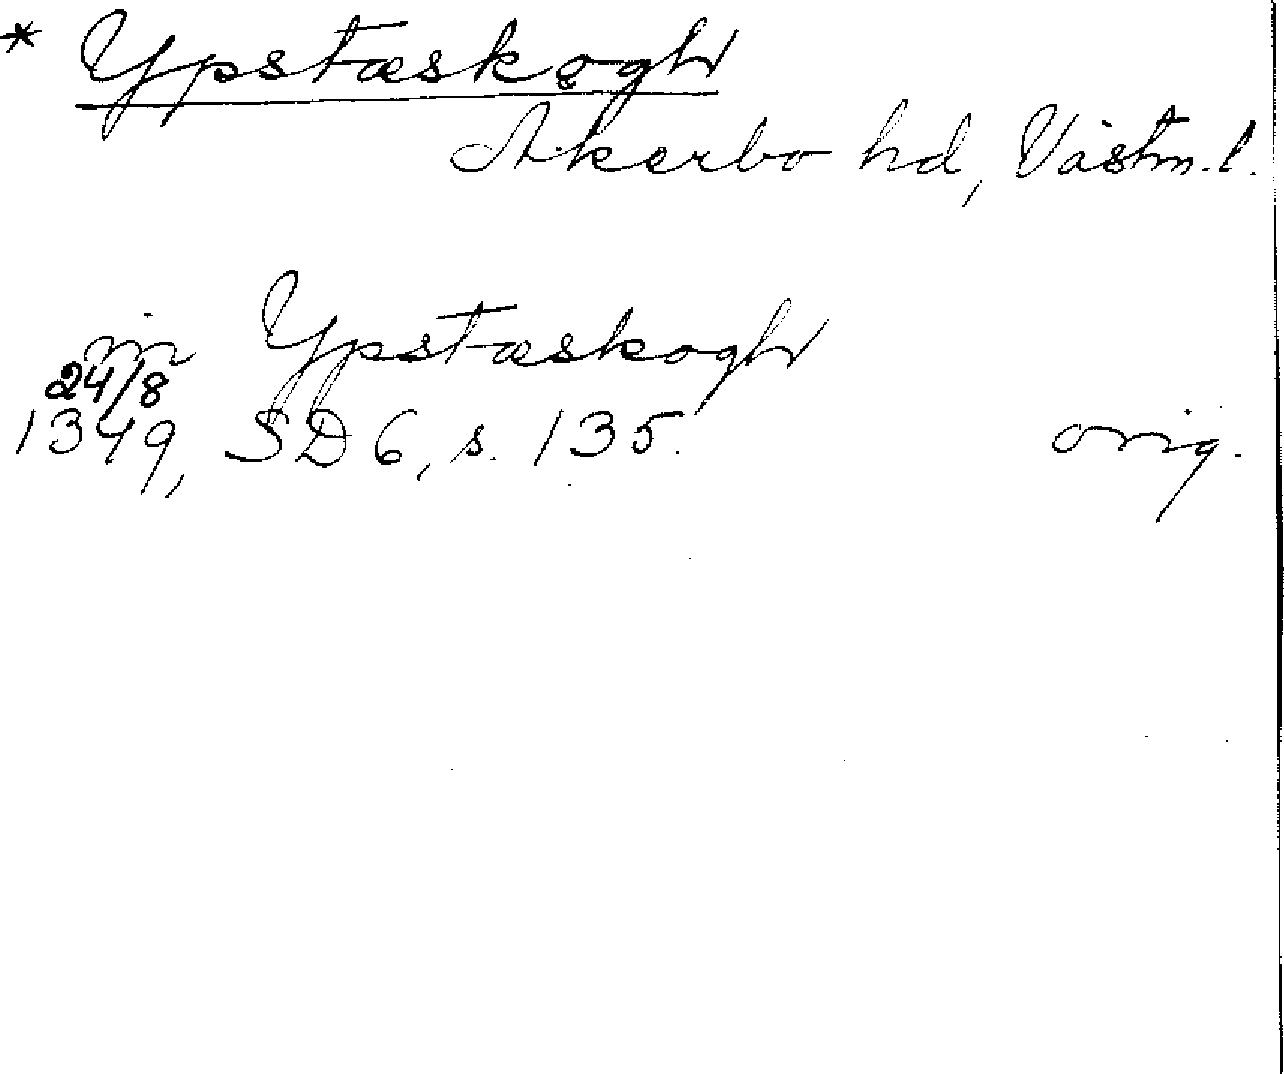 * Ypstæskogh
Åkerbo hd, Västm. l.
in Ypstæskogh
24/8
1349, SD 6, s. 135. orig.